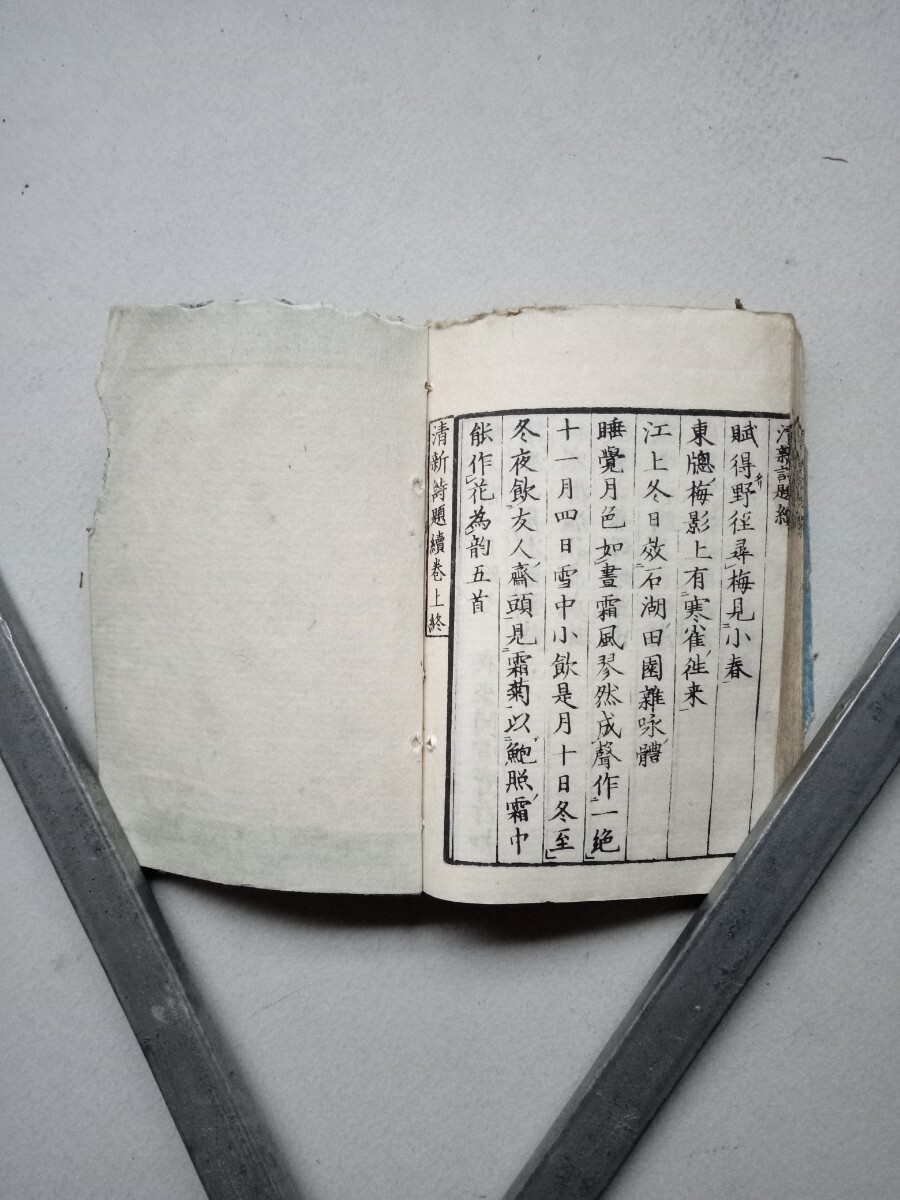 清新詩題續
賦得野徑尋梅見小春
東牕梅影上有寒雀徃来
江上冬日效石湖田園雜咏體
睡覺月色如晝霜風琴然成聲作一絶
十一月四日雪中小飲是月十日冬至
冬夜飲友人齋頭見霜菊以鮑照霜中
能作花為韵五首
清新詩題續卷上終